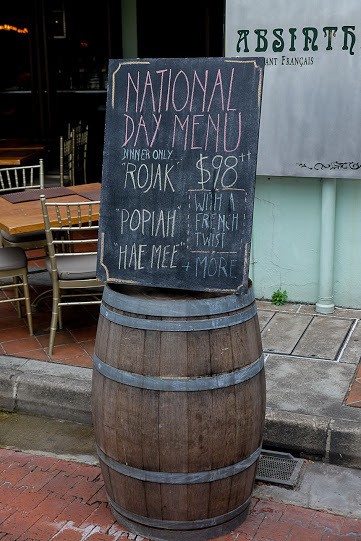 NATIONAL
DAY MENU
DINNER ONLY
"ROJAK"
"POPIAH"
"HAE MEE"
$98++
WITH A
FRENCH
TWIST
+ MORE
ABSINTH
ANT FRANÇAIS